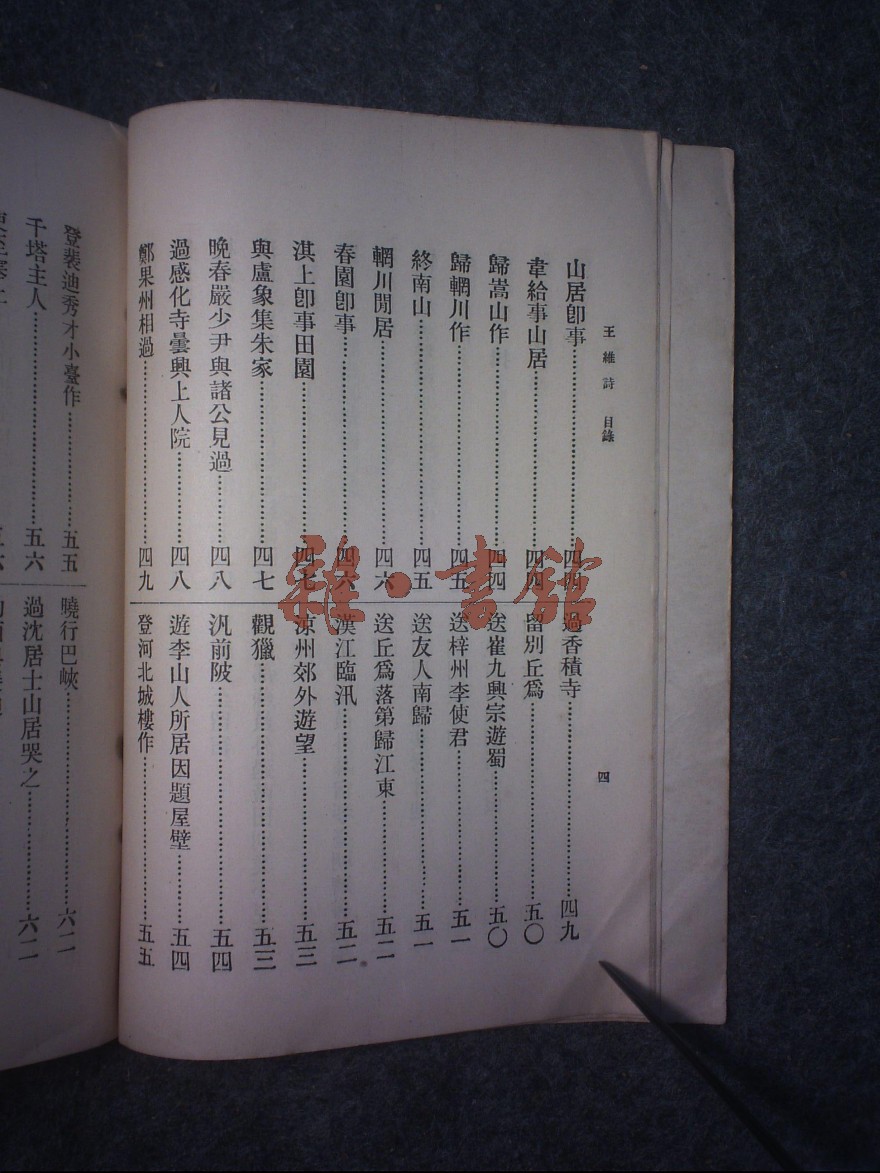 王維詩 目錄
四
山居卽事……四四
韋給事山居……四四
歸嵩山作……四四
歸輞川作……四五
終南山……四五
輞川閒居……四六
春園卽事……四六
淇上卽事田園……四七
與盧象集朱家……四七
晚春嚴少尹與諸公見過……四八
過感化寺曇興上人院……四八
鄭果州相過……四九
過香積寺……四九
留別丘爲……五〇
送崔九興宗遊蜀……五〇
送梓州李使君……五一
送友人南歸……五一
送丘爲落第歸江東……五二
漢江臨汎……五二
涼州郊外遊望……五三
觀獵……五三
汎前陂……五四
遊李山人所居因題屋壁……五四
登河北城樓作……五五
登裴迪秀才小臺作……五五
千塔主人……五六
曉行巴峽……六二
過沈居士山居哭之……六二
雜·書館